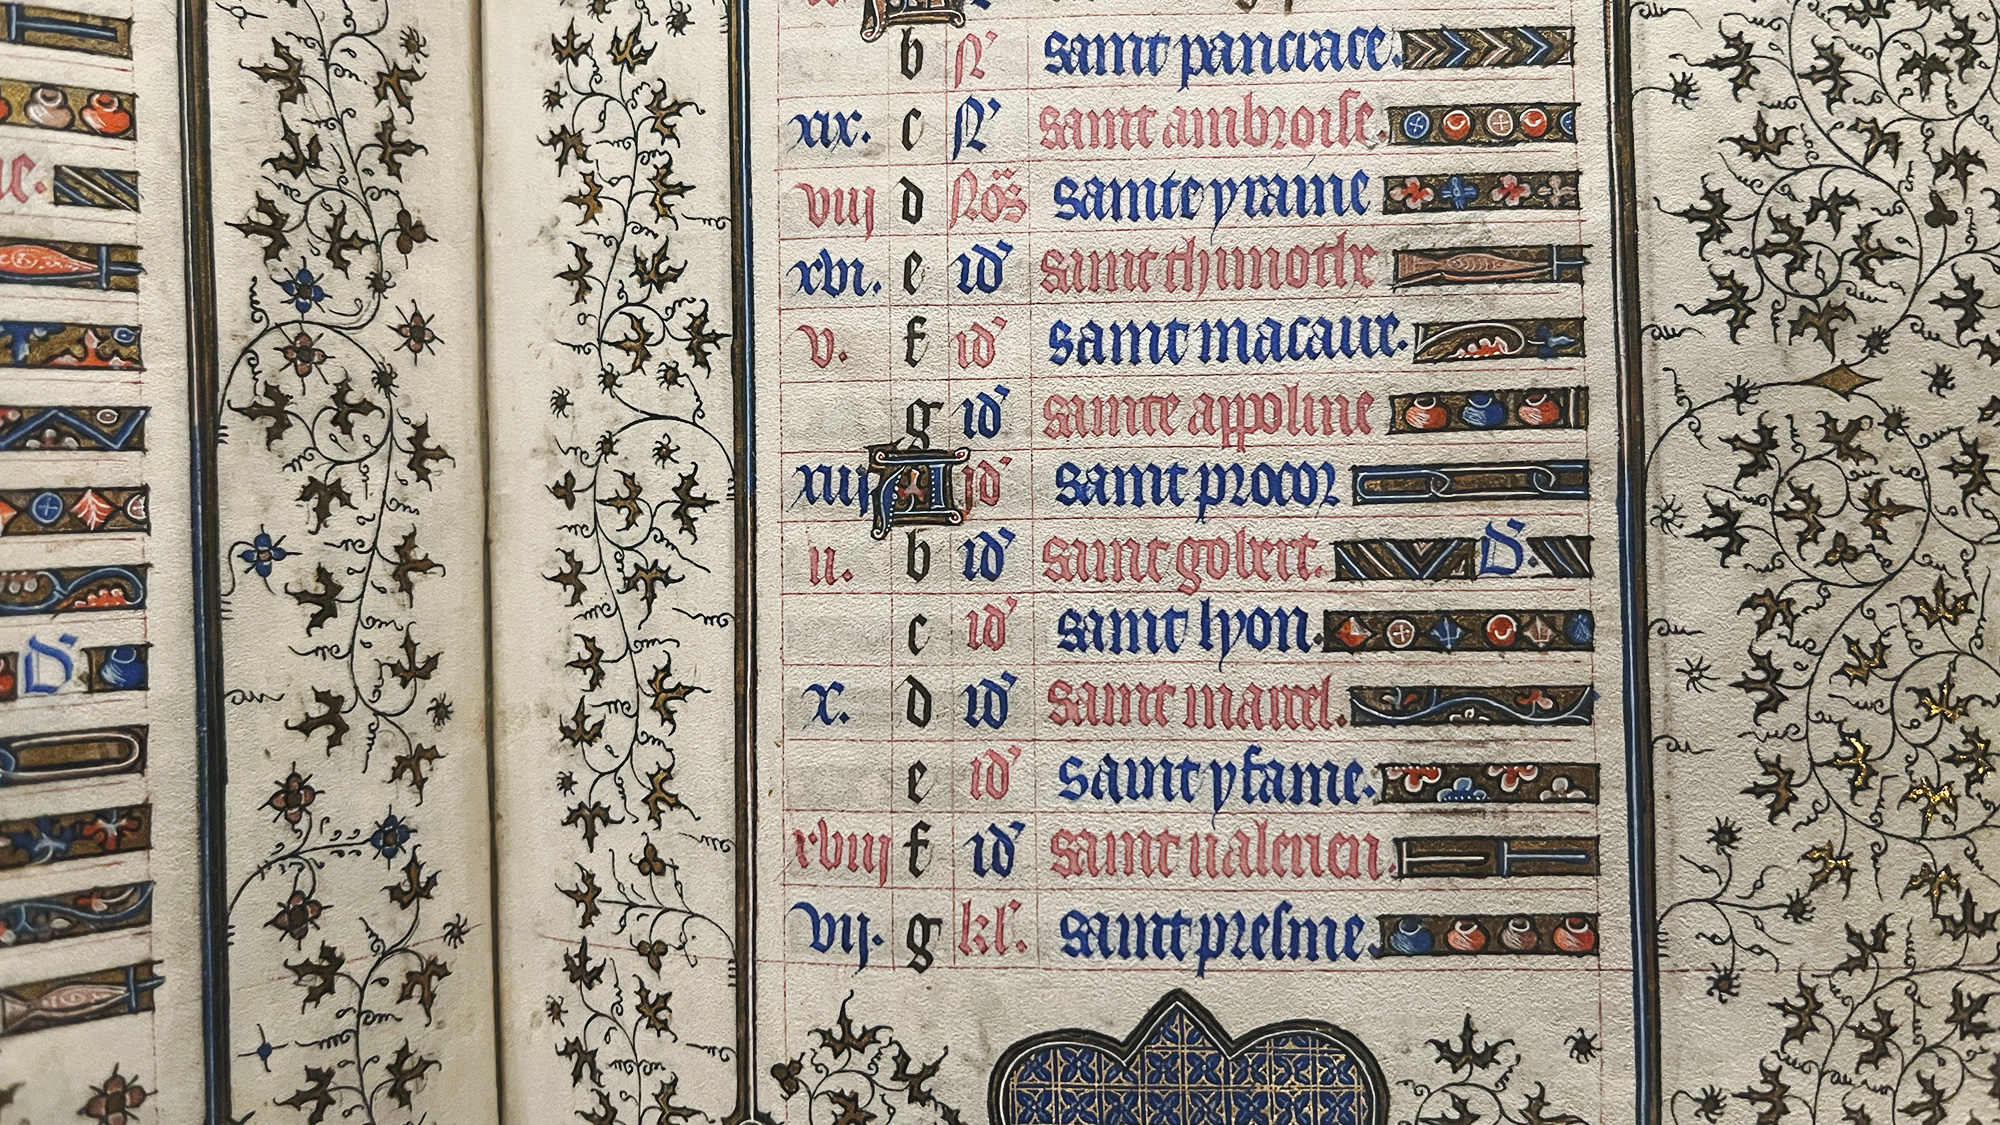 b N' saint pancrace.
xix. c N' saint ambroise.
viij d Nōs sainte yraine
xvi. e id' saint thimothe
v. f id' saint macaire.
g id' sainte appoline
xiij A id' saint procor
ii. b id' saint gobert. D.
c id' saint lyon.
x. d id' saint marcel.
e id' saint yfame.
xviij f id' saint ualenten.
vij. g kl'. saint presme.
D.